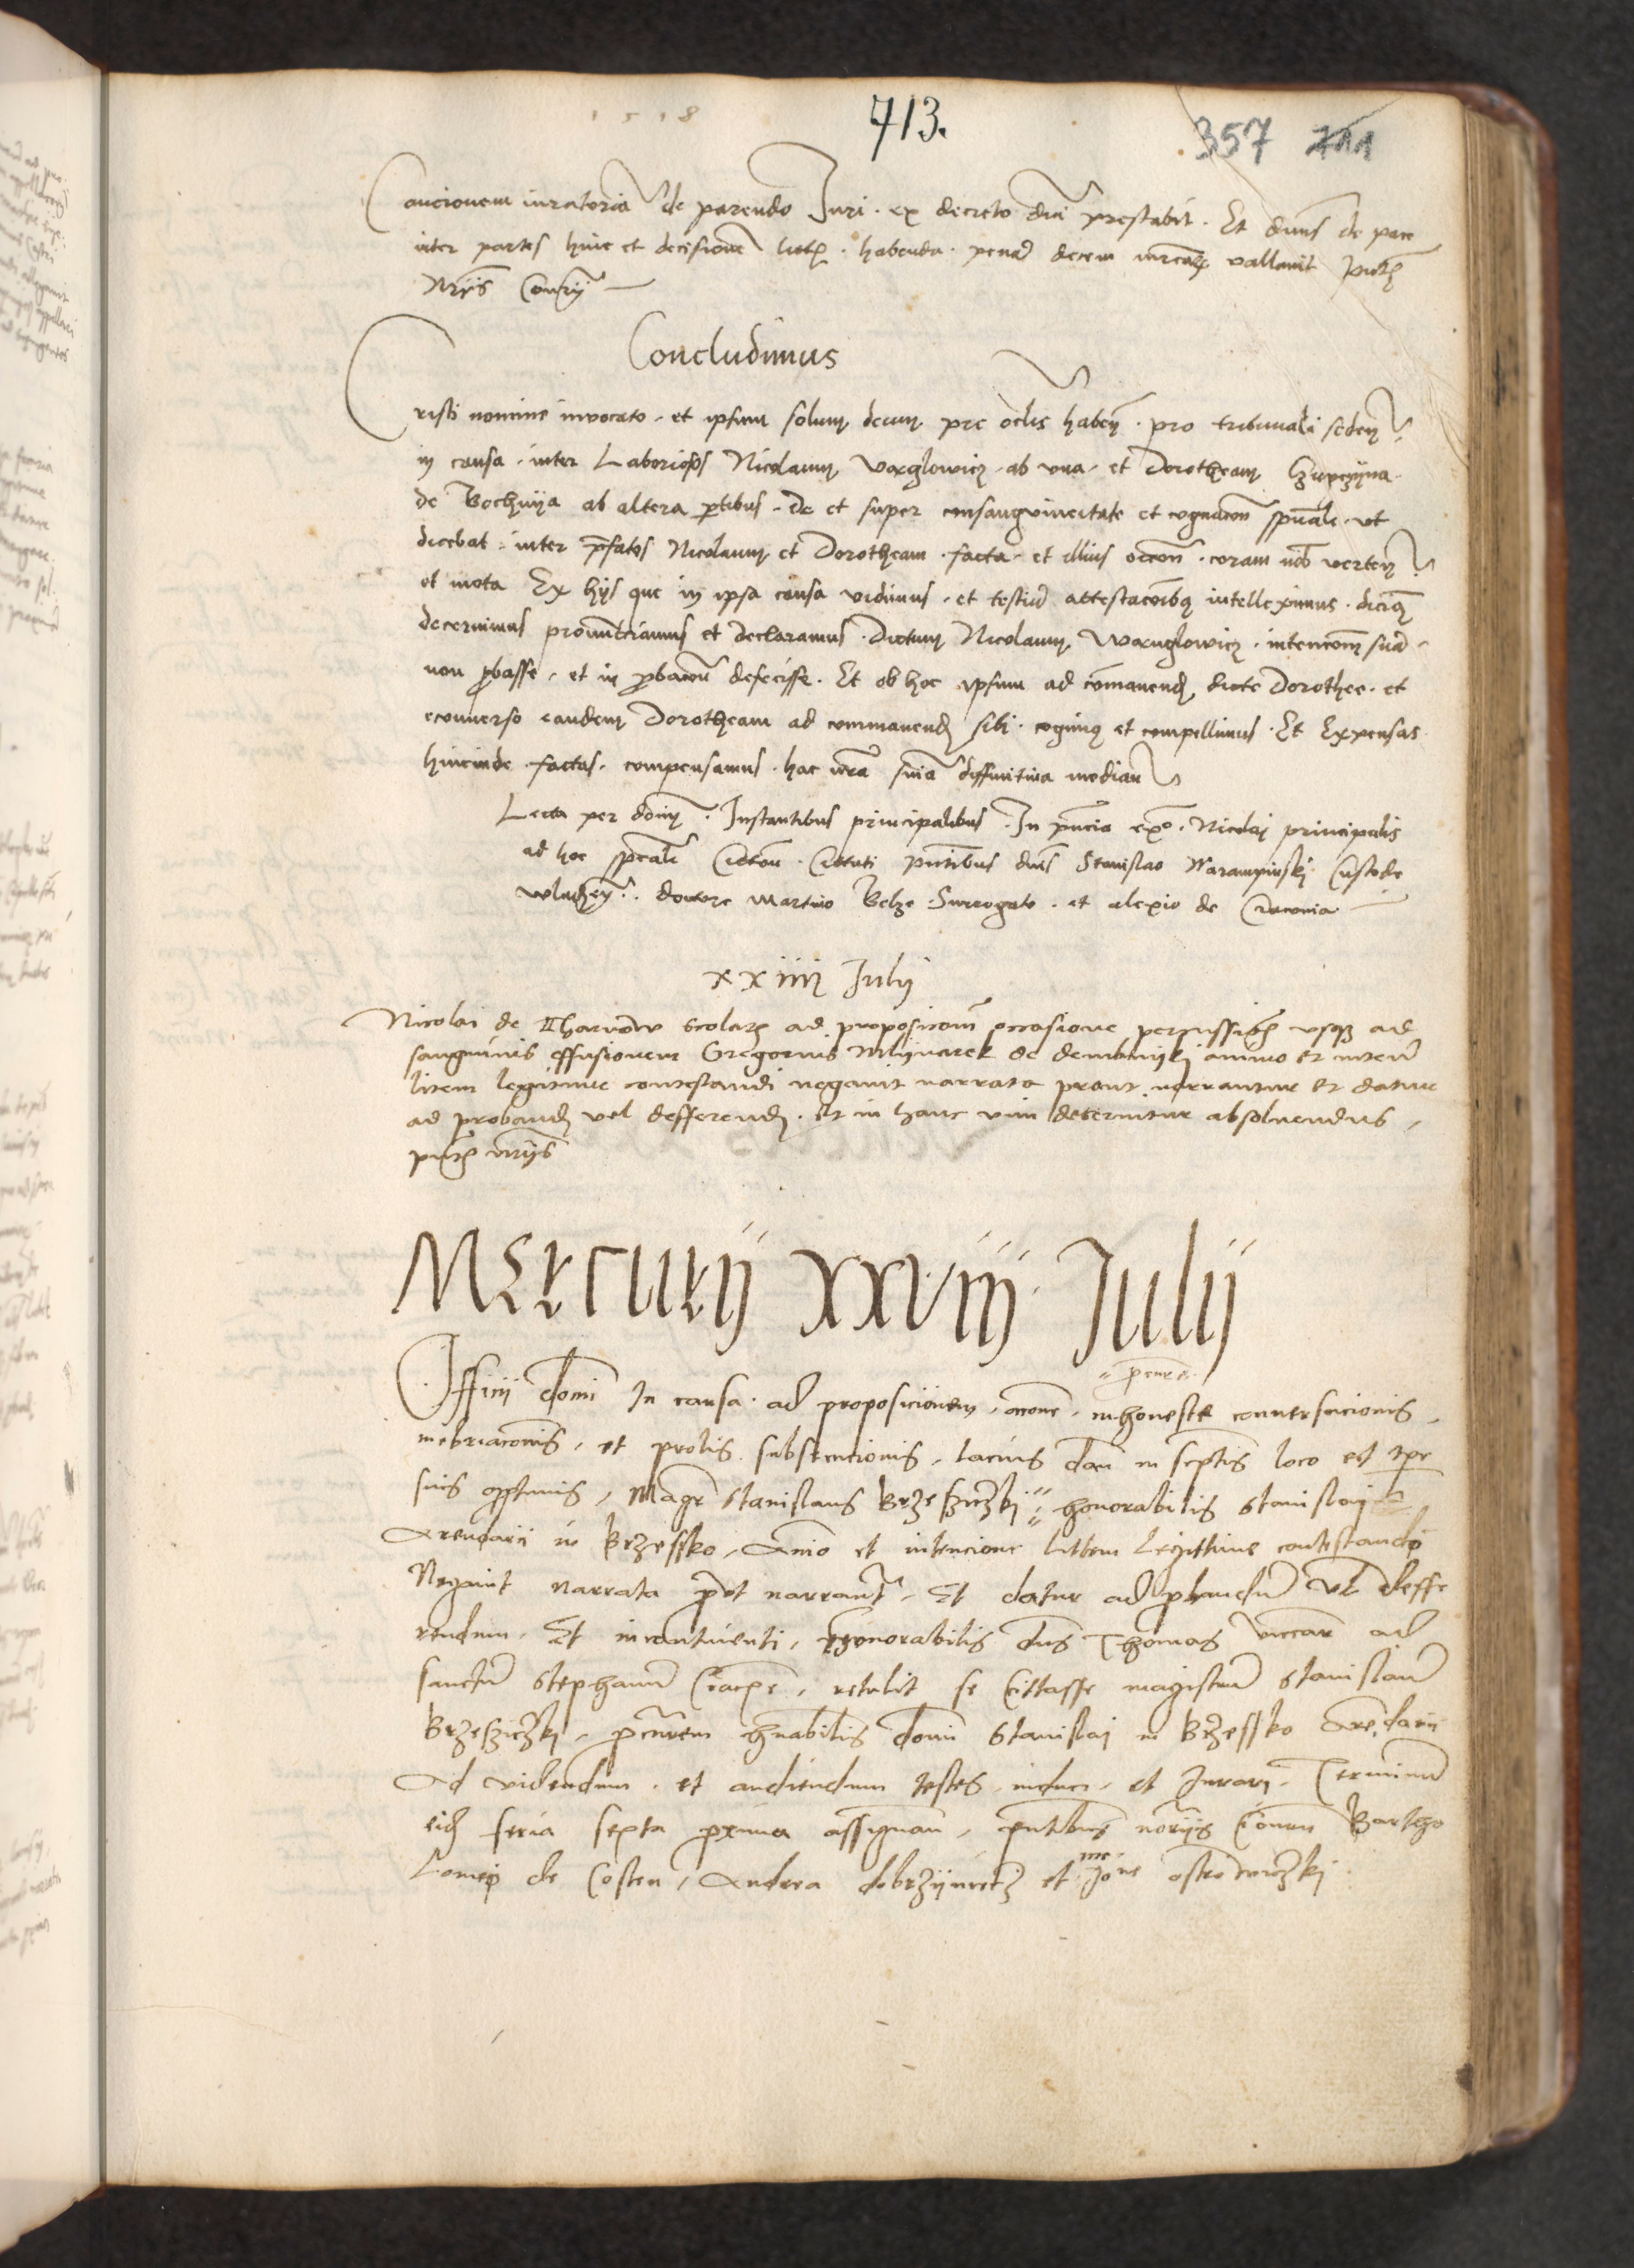 1518
713.
357 711
Caucionem iuratoria de parendo Juri · ex decreto dni prestabit · Et dnus de pace
inter partes hinc et decisione litis · habenda · penam decem mrcarum vallavit pntibus
Nrijs Consrij
Concludimus
Cristi nomine invocato · et ipsum solum deum pre oclis haben · pro tribunali seden
in causa · inter Laboriosos Nicolaum Varglowicz · ab una · et Dorotheam
de Bochnya ab altera ptibus · de et super consangvineitate et cognacon spuale · ut
dicebat · inter pfatos Nicolaum et Dorotheam · facta · et illius occon · coram nob verten
et mota Ex hijs que in ipsa causa vidimus · et testium attestacoibus intelleximus · dicimus
decernimus pronuncciamus et declaramus · Dictum Nicolaum Warnglowicz · intencom suam
non pbasse · et in pbacon defecisse · Et ob hoc ipsum ad comanend dicte Dorothee · et
econuerso eandem Dorotheam ad commanend sibi · cogimus et compellimus · Et Expensas
hincinde factas · compensamus · hac nra snia diffinitiva median
Lecta per dnum · Instantibus principalibus · In pncia ex° · Nicolai principalis
ad hoc speale Citacon · Citati pntibus dnis Stanislao Warampinski Custode
doctore Martino Belze Surrogato · et alexio de Cracovia
xxiiij Julij
Nicolai de Tharnow scolaris ad proposicom occasione percussionis usque ad
sanguinis effusionem Gregorius mlijnarek de dembnijki animo et inten
litem legitime contestandi negavit narrata prout narrantur et datur
ad proband vel defferend · Et in hanc vim decernitur absolvendus
pntibus nrijs
Mercurij xxviij Julij
pcure
Officij domi In causa · ad proposicionem · occone · inhoneste conversacionis
inebriaconis · et prolis substentionis · lacius dari in scptis loco et tpre
suis optimis · Magr Stanislaus Brzesziczki honorabilis Stanislai
Arendarii in Brzessko · Animo et intencione littem legittime contestandi
Negavit narrata put narrant · Et datur ad pbandum vel deffe
rendum · Et incontinenti · honorabilis dns Thomas vicar ad
sanctum Stephanum Cracovie · retulit se Cittasse magistrum Stanislaum
Brzesziczki · pcurem hnabilis domi Stanislai in Brzessko Arendarii
Ad videndum · et audiendum testes · induci · et Jurari · Terminum
eid feria sexta pxima assignan · pntibus norijs Conan Bartho
lomeo de Costen · Andrea dobrzijnieczki et me Jone ostrowiczki